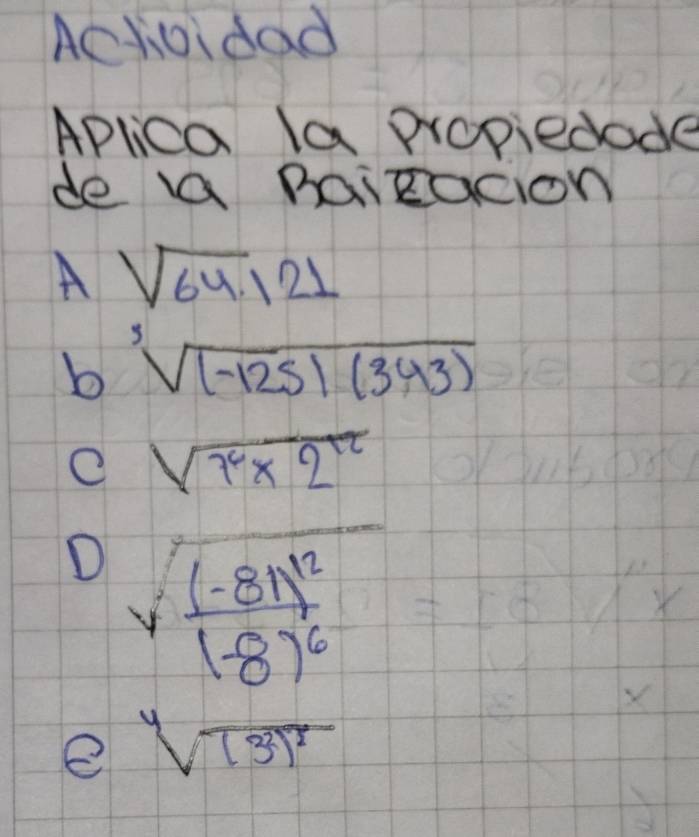 Actividad
Aplica la propiedade
de la Raizacion
A √64.121
b ³√(-125) (343)
C √7⁶ x 2¹²
D √(-81)¹² / (-8)⁶
e ⁴√(3²)²